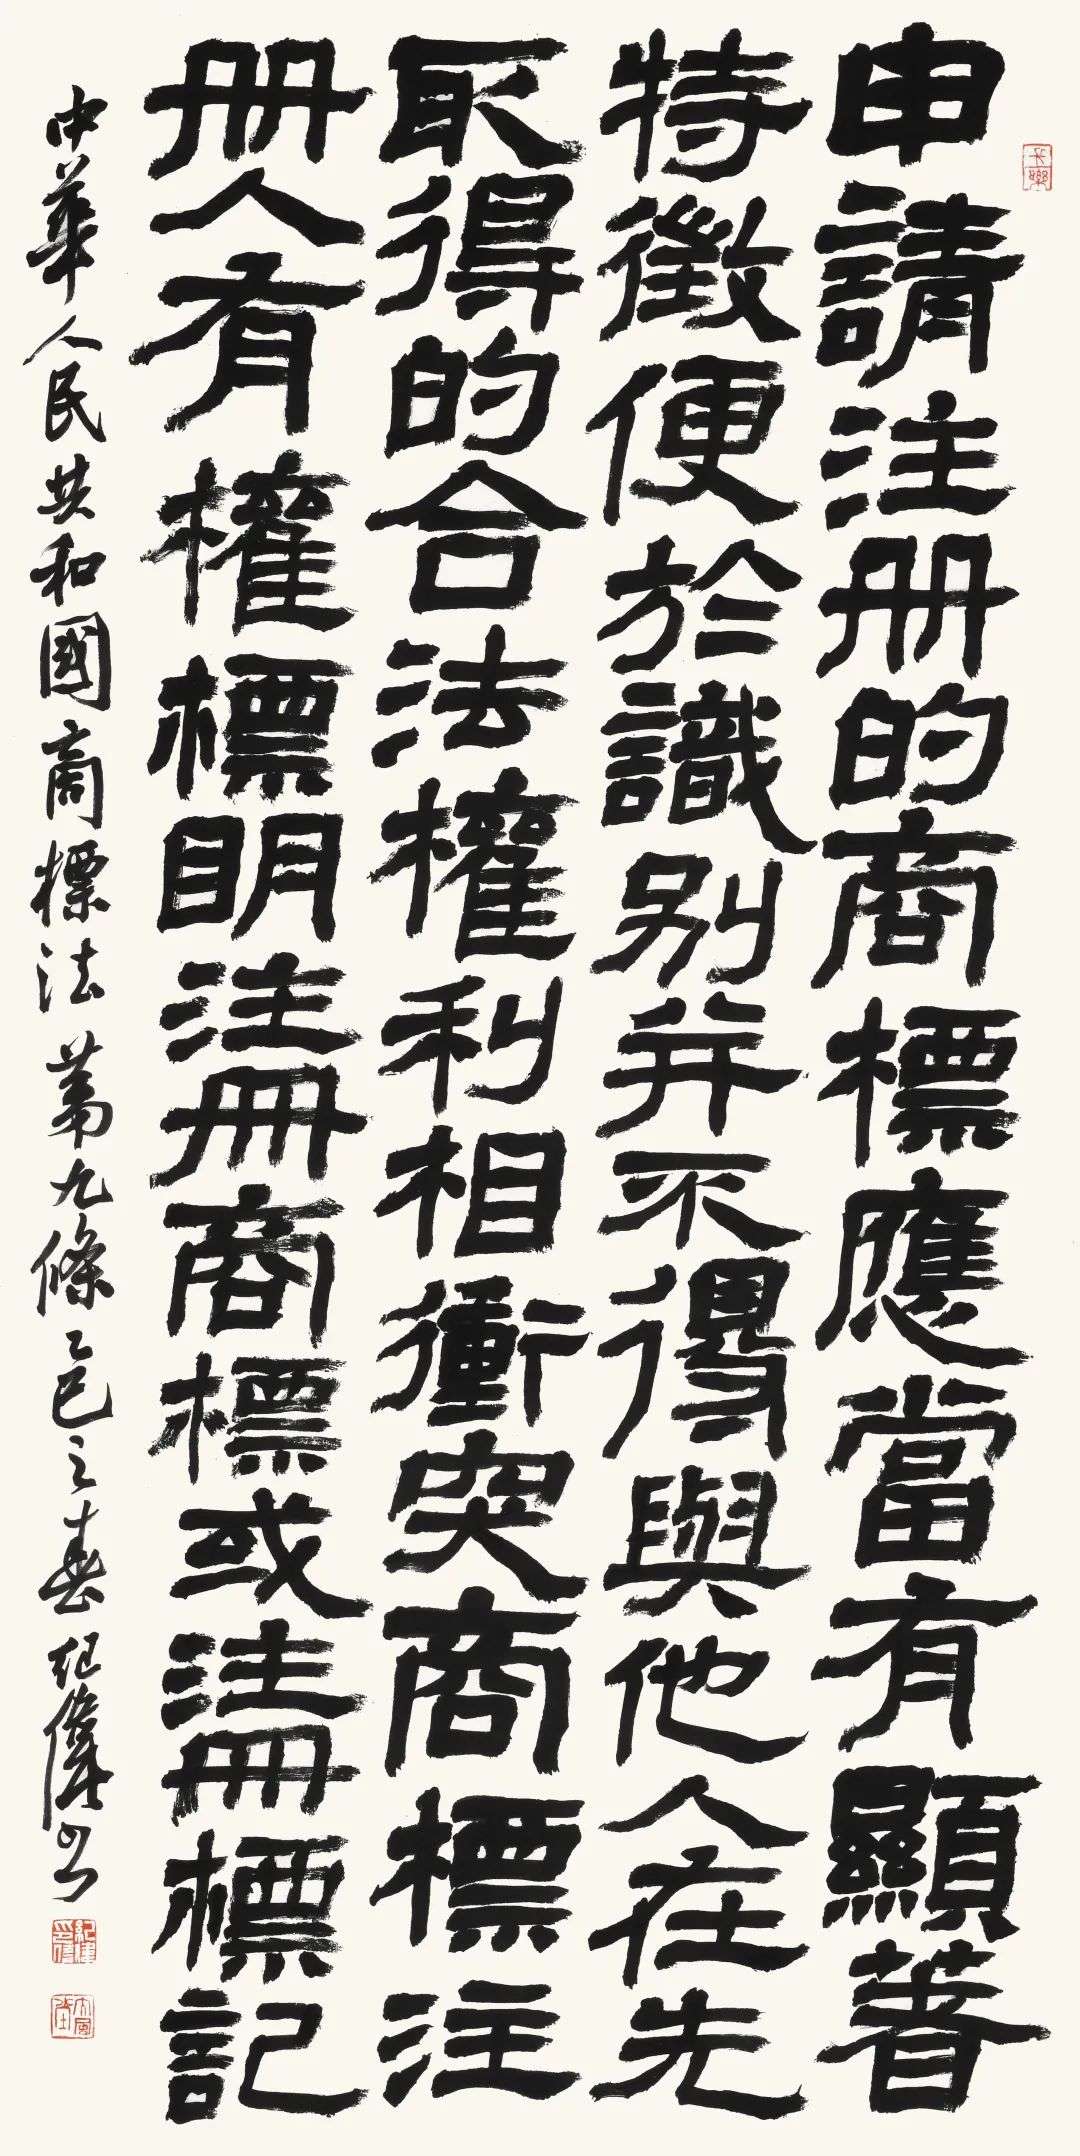 申請注册的商標應當有顯著
特徵便於識别并不得與他人在先
取得的合法權利相衝突商標注
册人有權標明注册商標或注册標記
中華人民共和國商標法第九條乙巳之春纪偉書